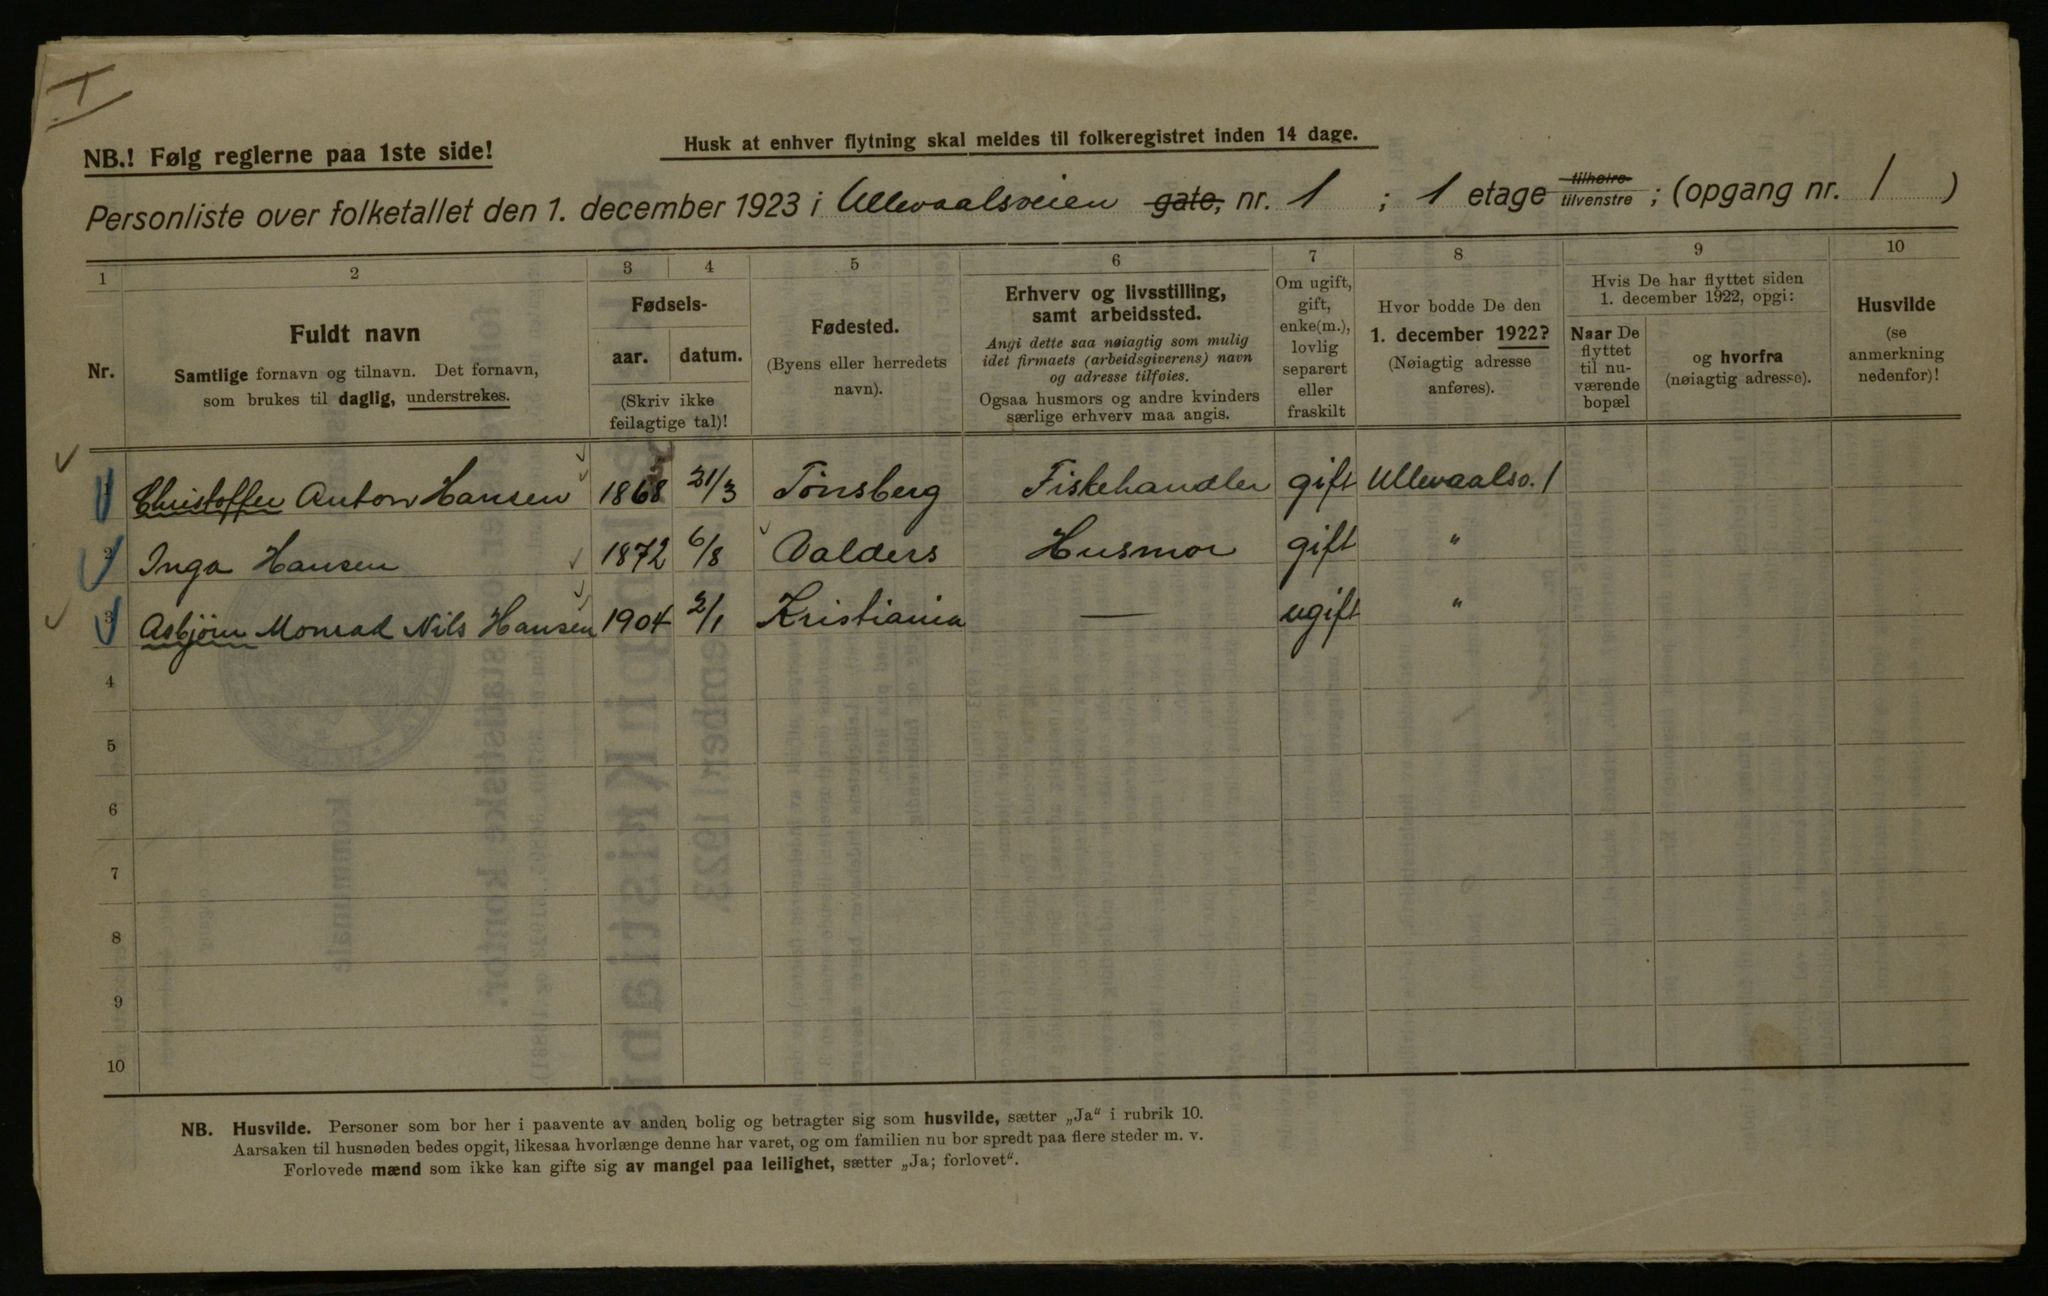 I
NB.! Følg reglerne paa 1ste side!
Husk at enhver flytning skal meldes til folkeregistret inden 14 dage.
Personliste over folketallet den 1. december 1923 i Ullevaalsveien gate, nr. 1 ; 1 etage tilhøire tilvenstre ; (opgang nr. 1 )
1 2 3 4 5 6 7 8 9 10
Nr.
Fuldt navn
Samtlige fornavn og tilnavn. Det fornavn,
som brukes til daglig, understrekes.
Fødsels-
aar. datum.
(Skriv ikke
feilagtige tal)!
Fødested.
(Byens eller herredets
navn).
Erhverv og livsstilling,
samt arbeidssted.
Angi dette saa nøiagtig som mulig
idet firmaets (arbeidsgiverens) navn
og adresse tilføies.
Ogsaa husmors og andre kvinders
særlige erhverv maa angis.
Om ugift,
gift,
enke(m.),
lovlig
separert
eller
fraskilt
Hvor bodde De den
1. december 1922?
(Nøiagtig adresse
anføres).
Hvis De har flyttet siden
1. december 1922, opgi:
Naar De
flyttet
til nu-
værende
bopæl
og hvorfra
(nøiagtig adresse).
Husvilde
(se
anmerkning
nedenfor)!
1 Christoffer Anton Hansen 1868 21/3 Tönsberg Fiskehandler gift Ullevaalsv. 1
2 Inga Hansen 1872 6/8 Valders Husmor gift "
3 Asbjörn Monrad Nils Hansen 1904 2/1 Kristiania — ugift "
4
5
6
7
8
9
10
NB. Husvilde. Personer som bor her i paavente av anden bolig og betragter sig som husvilde, sætter „Ja“ i rubrik 10.
Aarsaken til husnøden bedes opgit, likesaa hvorlænge denne har varet, og om familien nu bor spredt paa flere steder m. v.
Forlovede mænd som ikke kan gifte sig av mangel paa leilighet, sætter „Ja; forlovet“.